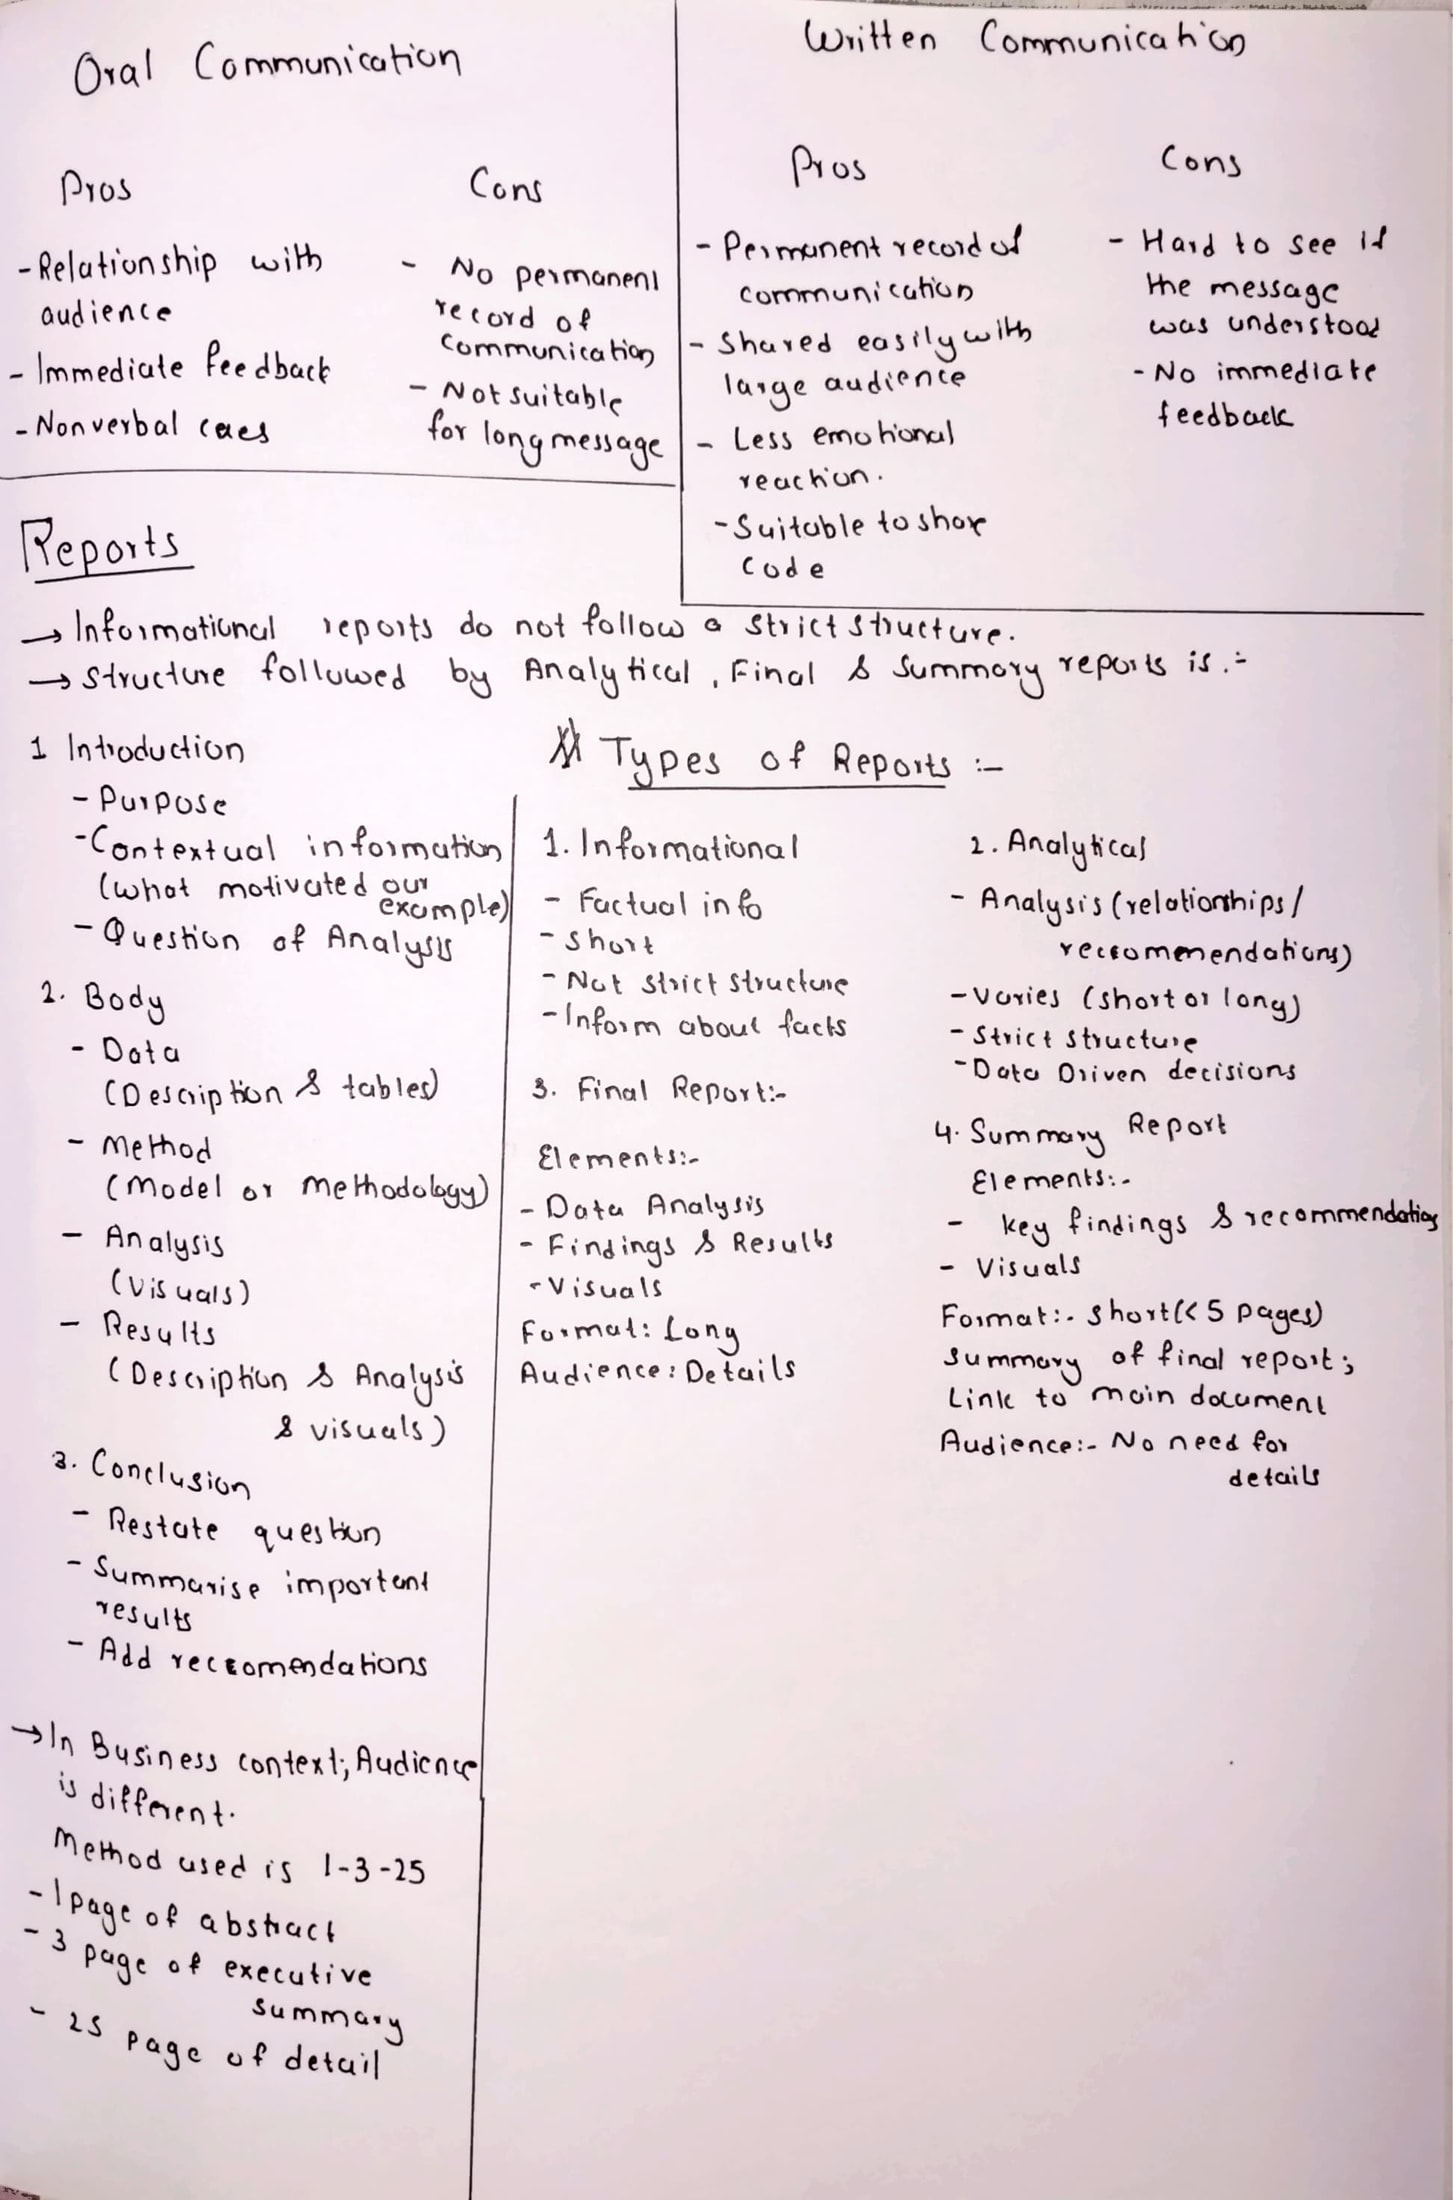 Oral Communication
Pros
- Relationship with
audience
- Immediate feedback
- Nonverbal caes
Cons
- No permanent
record of
communication
- Not suitable
for long message
Written Communication
Pros
- Permanent record of
communication
- Shared easily with
large audience
- Less emotional
reaction.
- Suitable to share
code
Cons
- Hard to see if
the message
was understood
- No immediate
feedback
Reports
→ Informational reports do not follow a strict structure.
→ Structure followed by Analytical, Final & Summary reports is :-
1 Introduction
- Purpose
- Contextual information
(what motivated our
example)
- Question of Analysis
2. Body
- Data
(Description & tables)
- Method
(Model or methodology)
- Analysis
(Visuals)
- Results
(Description & Analysis
& visuals)
3. Conclusion
- Restate question
- Summarise important
results
- Add reccomendations
→ In Business context; Audience
is different.
Method used is 1-3-25
- 1 page of abstract
- 3 page of executive
summary
- 25 page of detail
Types of Reports :-
1. Informational
- Factual info
- short
- Not strict structure
- Inform about facts
2. Analytical
- Analysis (relationships/
reccomenendations)
- Varies (short or long)
- Strict structure
- Data Driven decisions
3. Final Report:-
Elements:-
- Data Analysis
- Findings & Results
- Visuals
Format: Long
Audience: Details
4. Summary Report
Elements:-
- key findings & recommendations
- Visuals
Format:- short (< 5 pages)
summary of final report;
Link to main document
Audience:- No need for
details